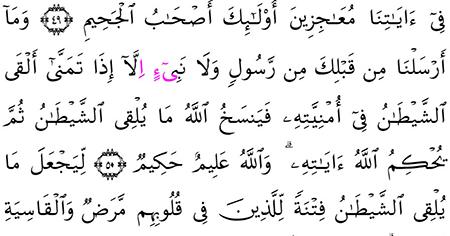 فِىٓ ءَايَـٰتِنَا مُعَـٰجِزِينَ أُوْلَـٰٓئِكَ أَصْحَـٰبُ ٱلْجَحِيمِ ۝٤٩ وَمَآ
أَرْسَلْنَا مِن قَبْلِكَ مِن رَّسُولٍ وَلَا نَبِىٓءٍ اِلَّآ إِذَا تَمَنَّىٰٓ أَلْقَى
ٱلشَّيْطَـٰنُ فِىٓ أُمْنِيَّتِهِۦ فَيَنسَخُ ٱللَّهُ مَا يُلْقِى ٱلشَّيْطَـٰنُ ثُمَّ
يُحْكِمُ ٱللَّهُ ءَايَـٰتِهِۦ ۗ وَٱللَّهُ عَلِيمٌ حَكِيمٌ ۝٥٠ لِّيَجْعَلَ مَا
يُلْقِى ٱلشَّيْطَـٰنُ فِتْنَةً لِّلَّذِينَ فِى قُلُوبِهِم مَّرَضٌ وَٱلْقَاسِيَةِ